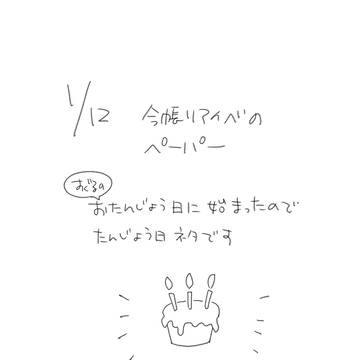 1/12 今帳リアイベの
ペーパー
すぐるの
おたんじょう日に始まったので
たんじょう日ネタです